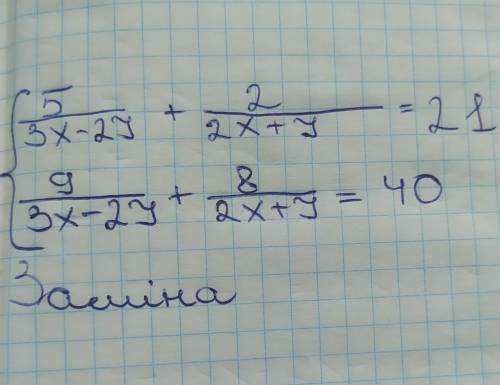 5/(3x-2y) + 2/(2x+y) = 21
9/(3x-2y) + 8/(2x+y) = 40
Заміна